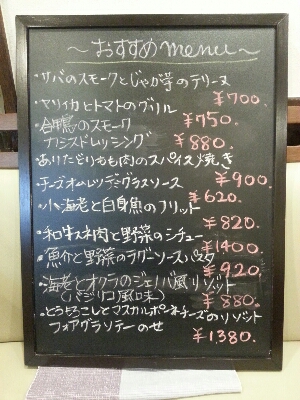 〜おすすめmenu〜
・サバのスモークとじゃが芋のテリーヌ
¥700.
・マリイカとトマトのグリル
¥750.
・合鴨のスモーク
カシスドレッシング
¥880.
・ありたどりもも肉のスパイス焼き
¥900.
・チーズオムレツデミグラスソース
¥620.
・小海老と白身魚のフリット
¥820.
・和牛スネ肉と野菜のシチュー
¥1400.
・魚介と野菜のラグーソースパスタ
¥920.
・海老とオクラのジェノバ風リゾット
(バジリコ風味)
¥880.
・とうもろこしとマスカルポーネチーズのリゾット
フォアグラソテーのせ
¥1380.